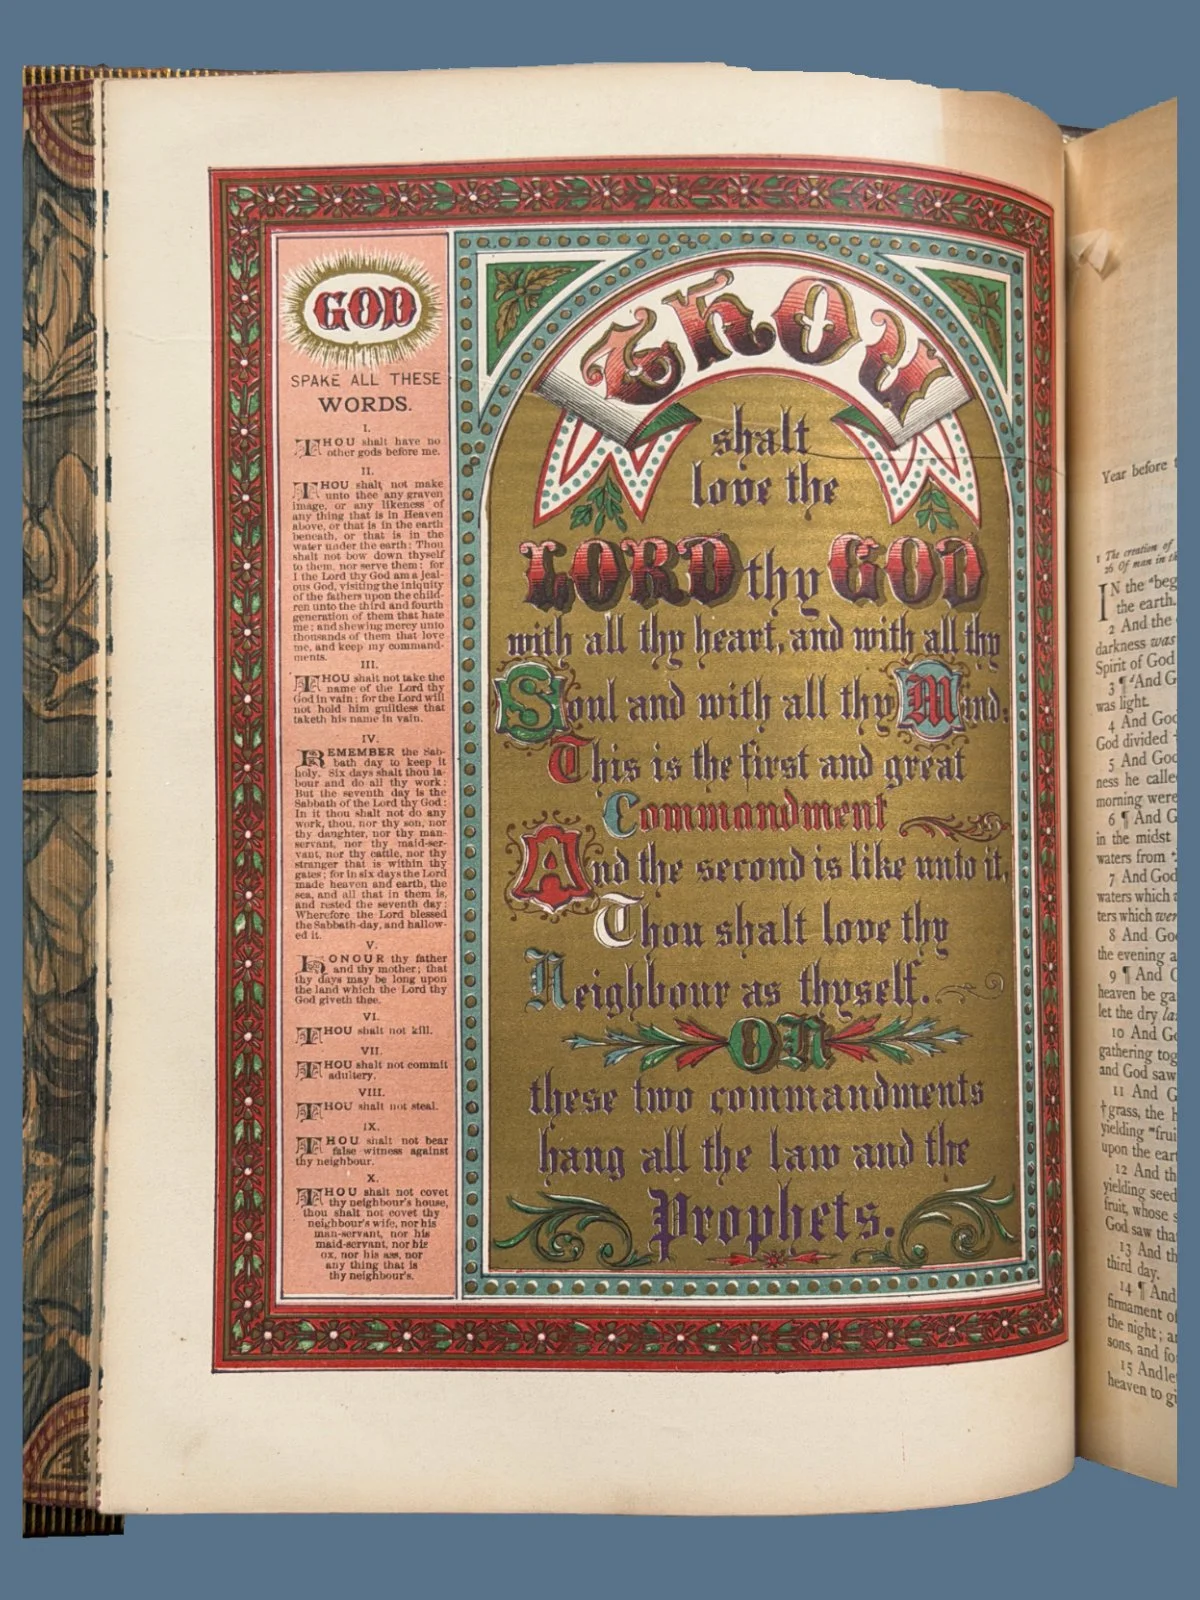 GOD
SPAKE ALL THESE
WORDS.
I.
THOU shalt have no
other gods before me.
II.
THOU shalt not make
unto thee any graven
image, or any likeness of
any thing that is in Heaven
above, or that is in the earth
beneath, or that is in the
water under the earth: Thou
shalt not bow down thyself
to them, nor serve them; for
I the Lord thy God am a jeal-
ous God, visiting the iniquity
of the fathers upon the child-
ren unto the third and fourth
generation of them that hate
me; and shewing mercy unto
thousands of them that love
me, and keep my command-
ments.
III.
THOU shalt not take the
name of the Lord thy
God in vain; for the Lord will
not hold him guiltless that
taketh his name in vain.
IV.
REMEMBER the Sab-
bath day to keep it
holy. Six days shalt thou la-
bour and do all thy work:
But the seventh day is the
Sabbath of the Lord thy God:
In it thou shalt not do any
work, thou, nor thy son, nor
thy daughter, nor thy man-
servant, nor thy maid-ser-
vant, nor thy cattle, nor thy
stranger that is within thy
gates; for in six days the Lord
made heaven and earth, the
sea, and all that in them is,
and rested the seventh day:
Wherefore the Lord blessed
the Sabbath-day, and hallow-
ed it.
V.
HONOUR thy father
and thy mother; that
thy days may be long upon
the land which the Lord thy
God giveth thee.
VI.
THOU shalt not kill.
VII.
THOU shalt not commit
adultery.
VIII.
THOU shalt not steal.
IX.
THOU shalt not bear
false witness against
thy neighbour.
X.
THOU shalt not covet
thy neighbour's house,
thou shalt not covet thy
neighbour's wife, nor his
man-servant, nor his
maid-servant, nor his
ox, nor his ass, nor
any thing that is
thy neighbour's.
Thou
shalt
love the
LORD thy GOD
with all thy heart, and with all thy
Soul and with all thy Mind:
This is the first and great
Commandment
And the second is like unto it,
Thou shalt love thy
Neighbour as thyself.
ON
these two commandments
hang all the law and the
Prophets.
Year before
1 The creation of
26 Of man in th
IN the beg
the earth.
2 And the
darkness was
Spirit of God
3 ¶ And G
was light.
4 And God
God divided
5 And God
ness he calle
morning were
6 ¶ And G
in the midst
waters from
7 And God
waters which
ters which wer
8 And Go
the evening a
9 ¶ And G
heaven be ga
let the dry la
10 And Go
gathering tog
and God saw
11 And G
grass, the h
yielding frui
upon the ear
12 And th
yielding seed
fruit, whose s
God saw tha
13 And th
third day.
14 ¶ And
firmament of
the night; a
sons, and fo
15 And le
heaven to gi